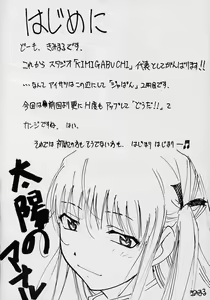 はじめに
どーも、きみまるです。
これから スタジオ「KIMIGABUCHI」代表としてがんばります!!
…なんて アイサツはこの辺にして「じゃぱん」2冊目です。
今回は前回より更に H度も アップして「どうだ!!」て
カンジですか。 はい。
それでは 初めての方も そうでない方も、 はじまり はじまり〜♫
太陽のアナル
きみまる